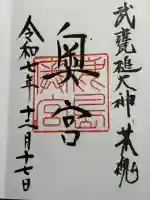 武甕槌大神 荒魂
奥宮
令和七年 十二月十七日